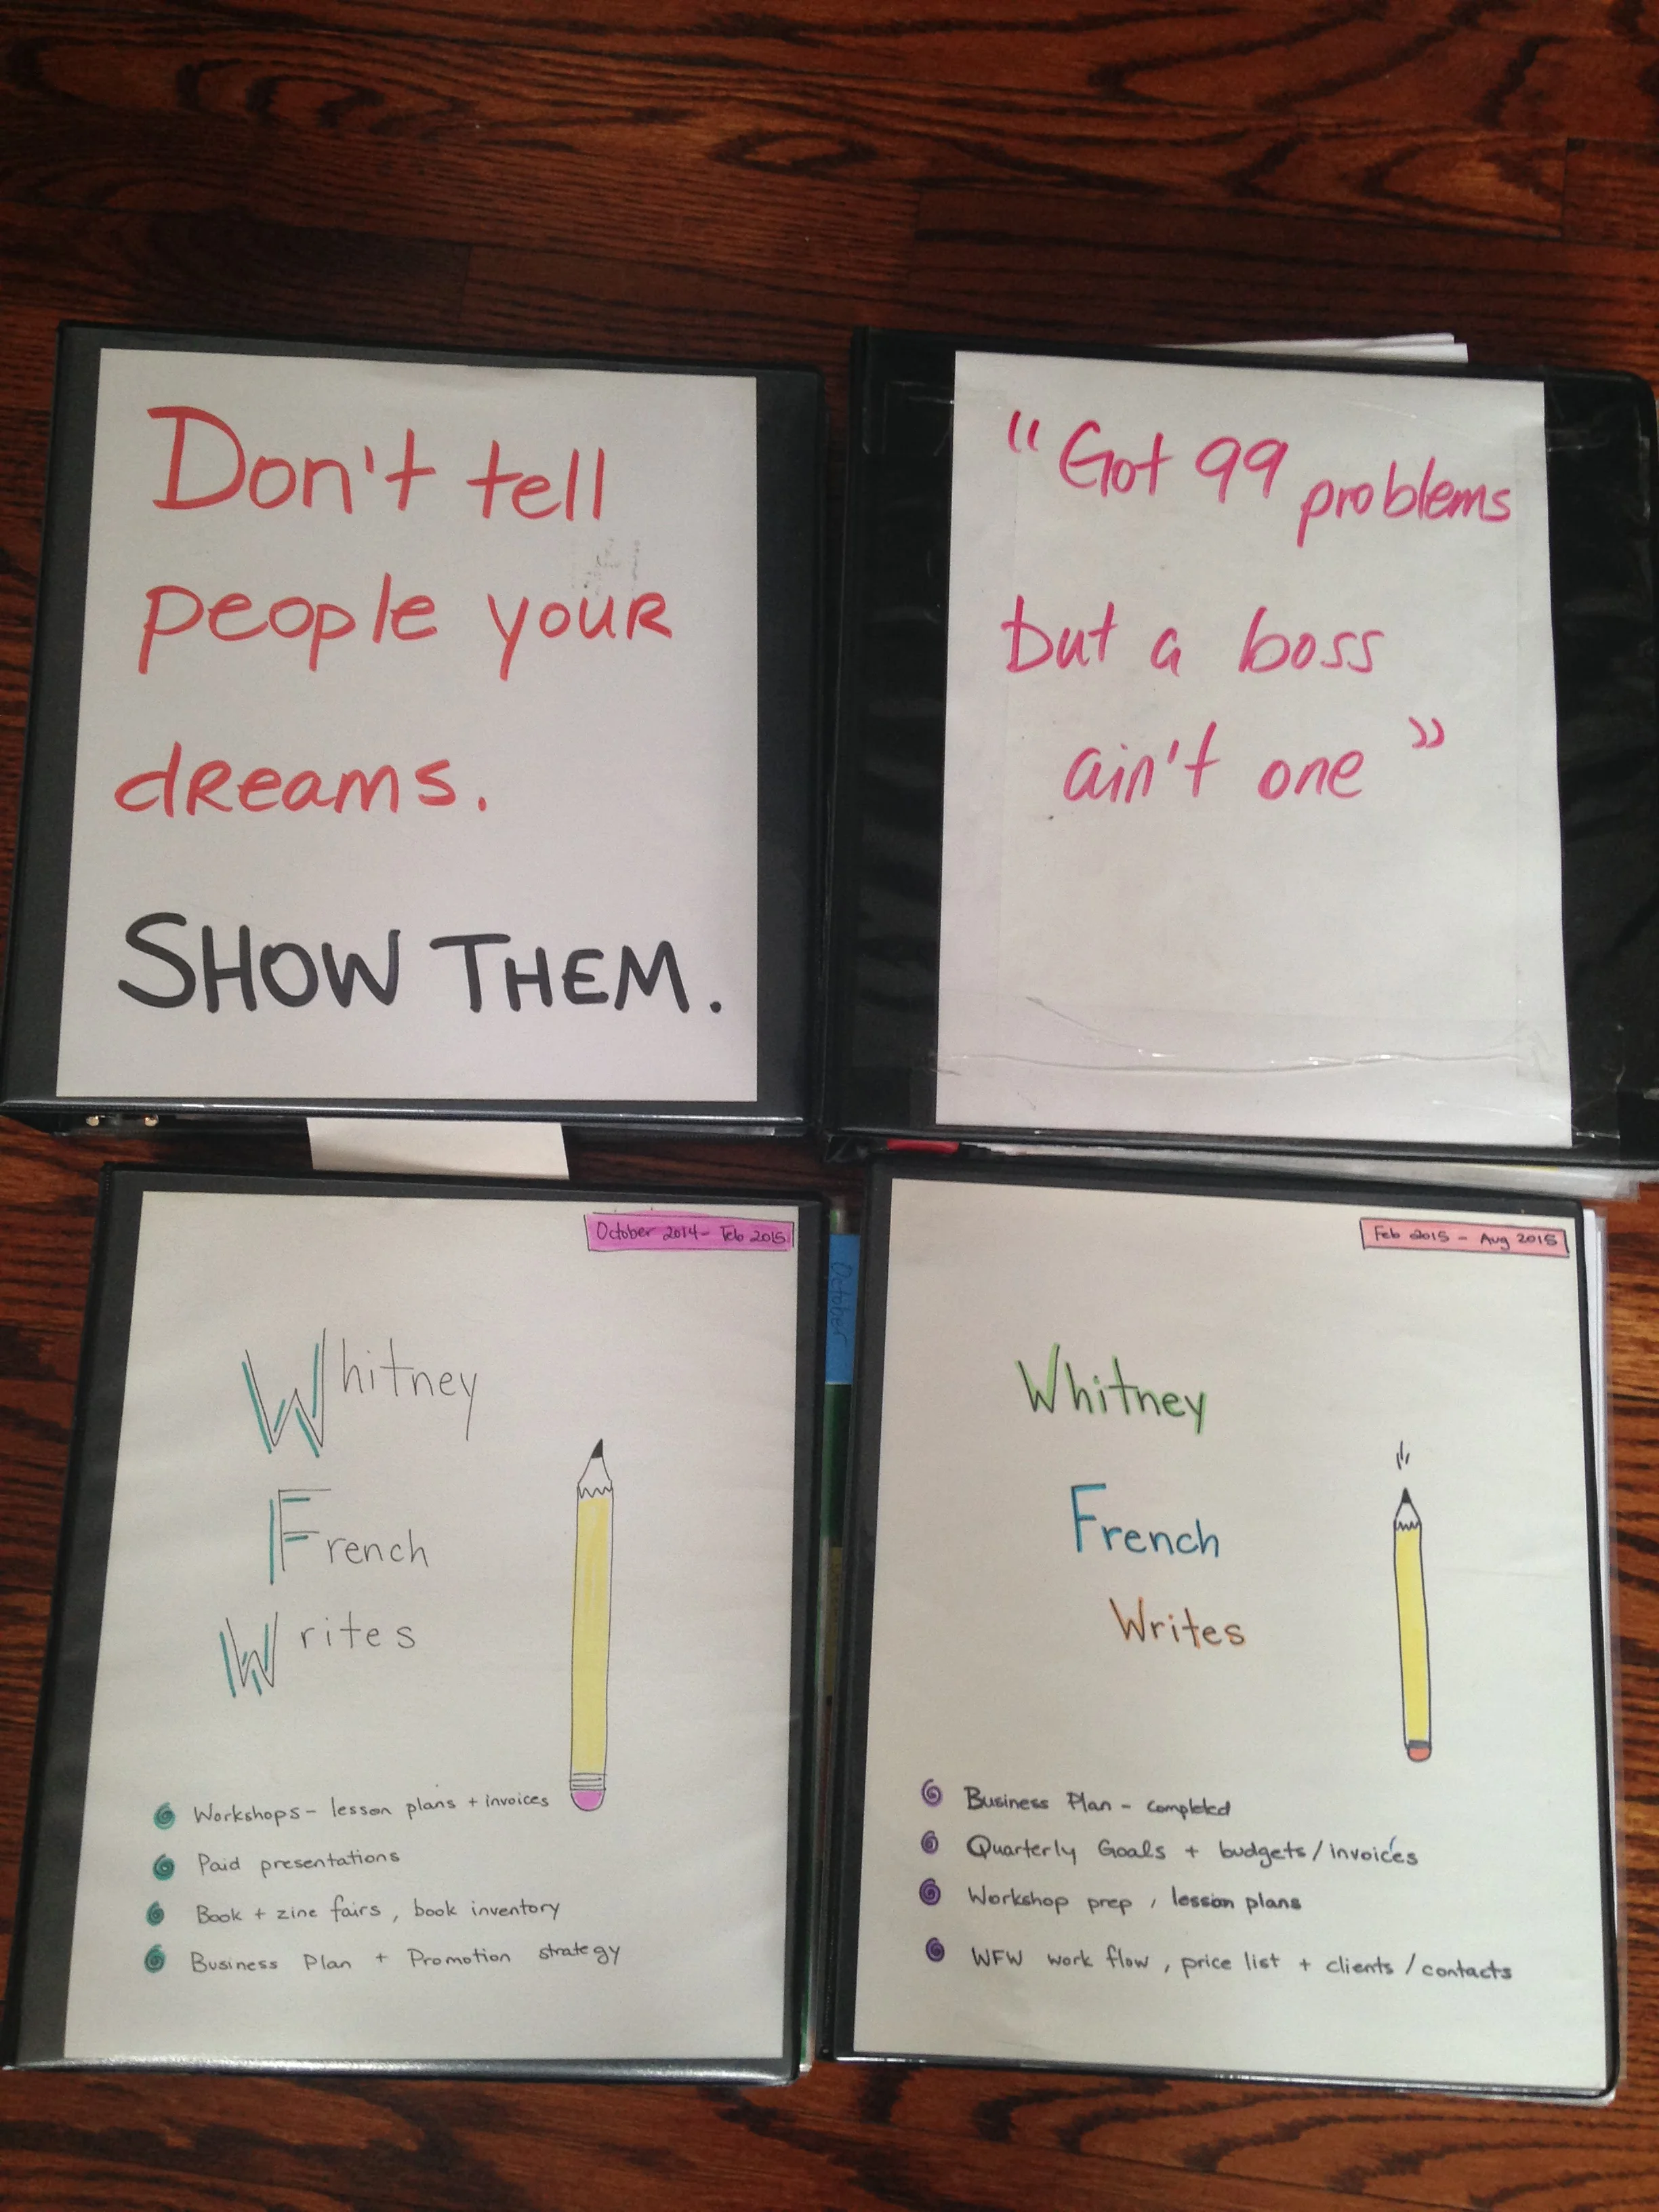 Don't tell
people your
dreams.
SHOW THEM.
"Got 99 problems
but a boss
ain't one"
October 2014 - Feb 2015
Whitney
French
Writes
Workshops - lesson plans + invoices
Paid presentations
Book + zine fairs, book inventory
Business Plan + Promotion strategy
October
Feb 2015 - Aug 2015
Whitney
French
Writes
Business Plan - completed
Quarterly Goals + budgets/invoices
Workshop prep, lesson plans
WFW work flow, price list + clients/contacts